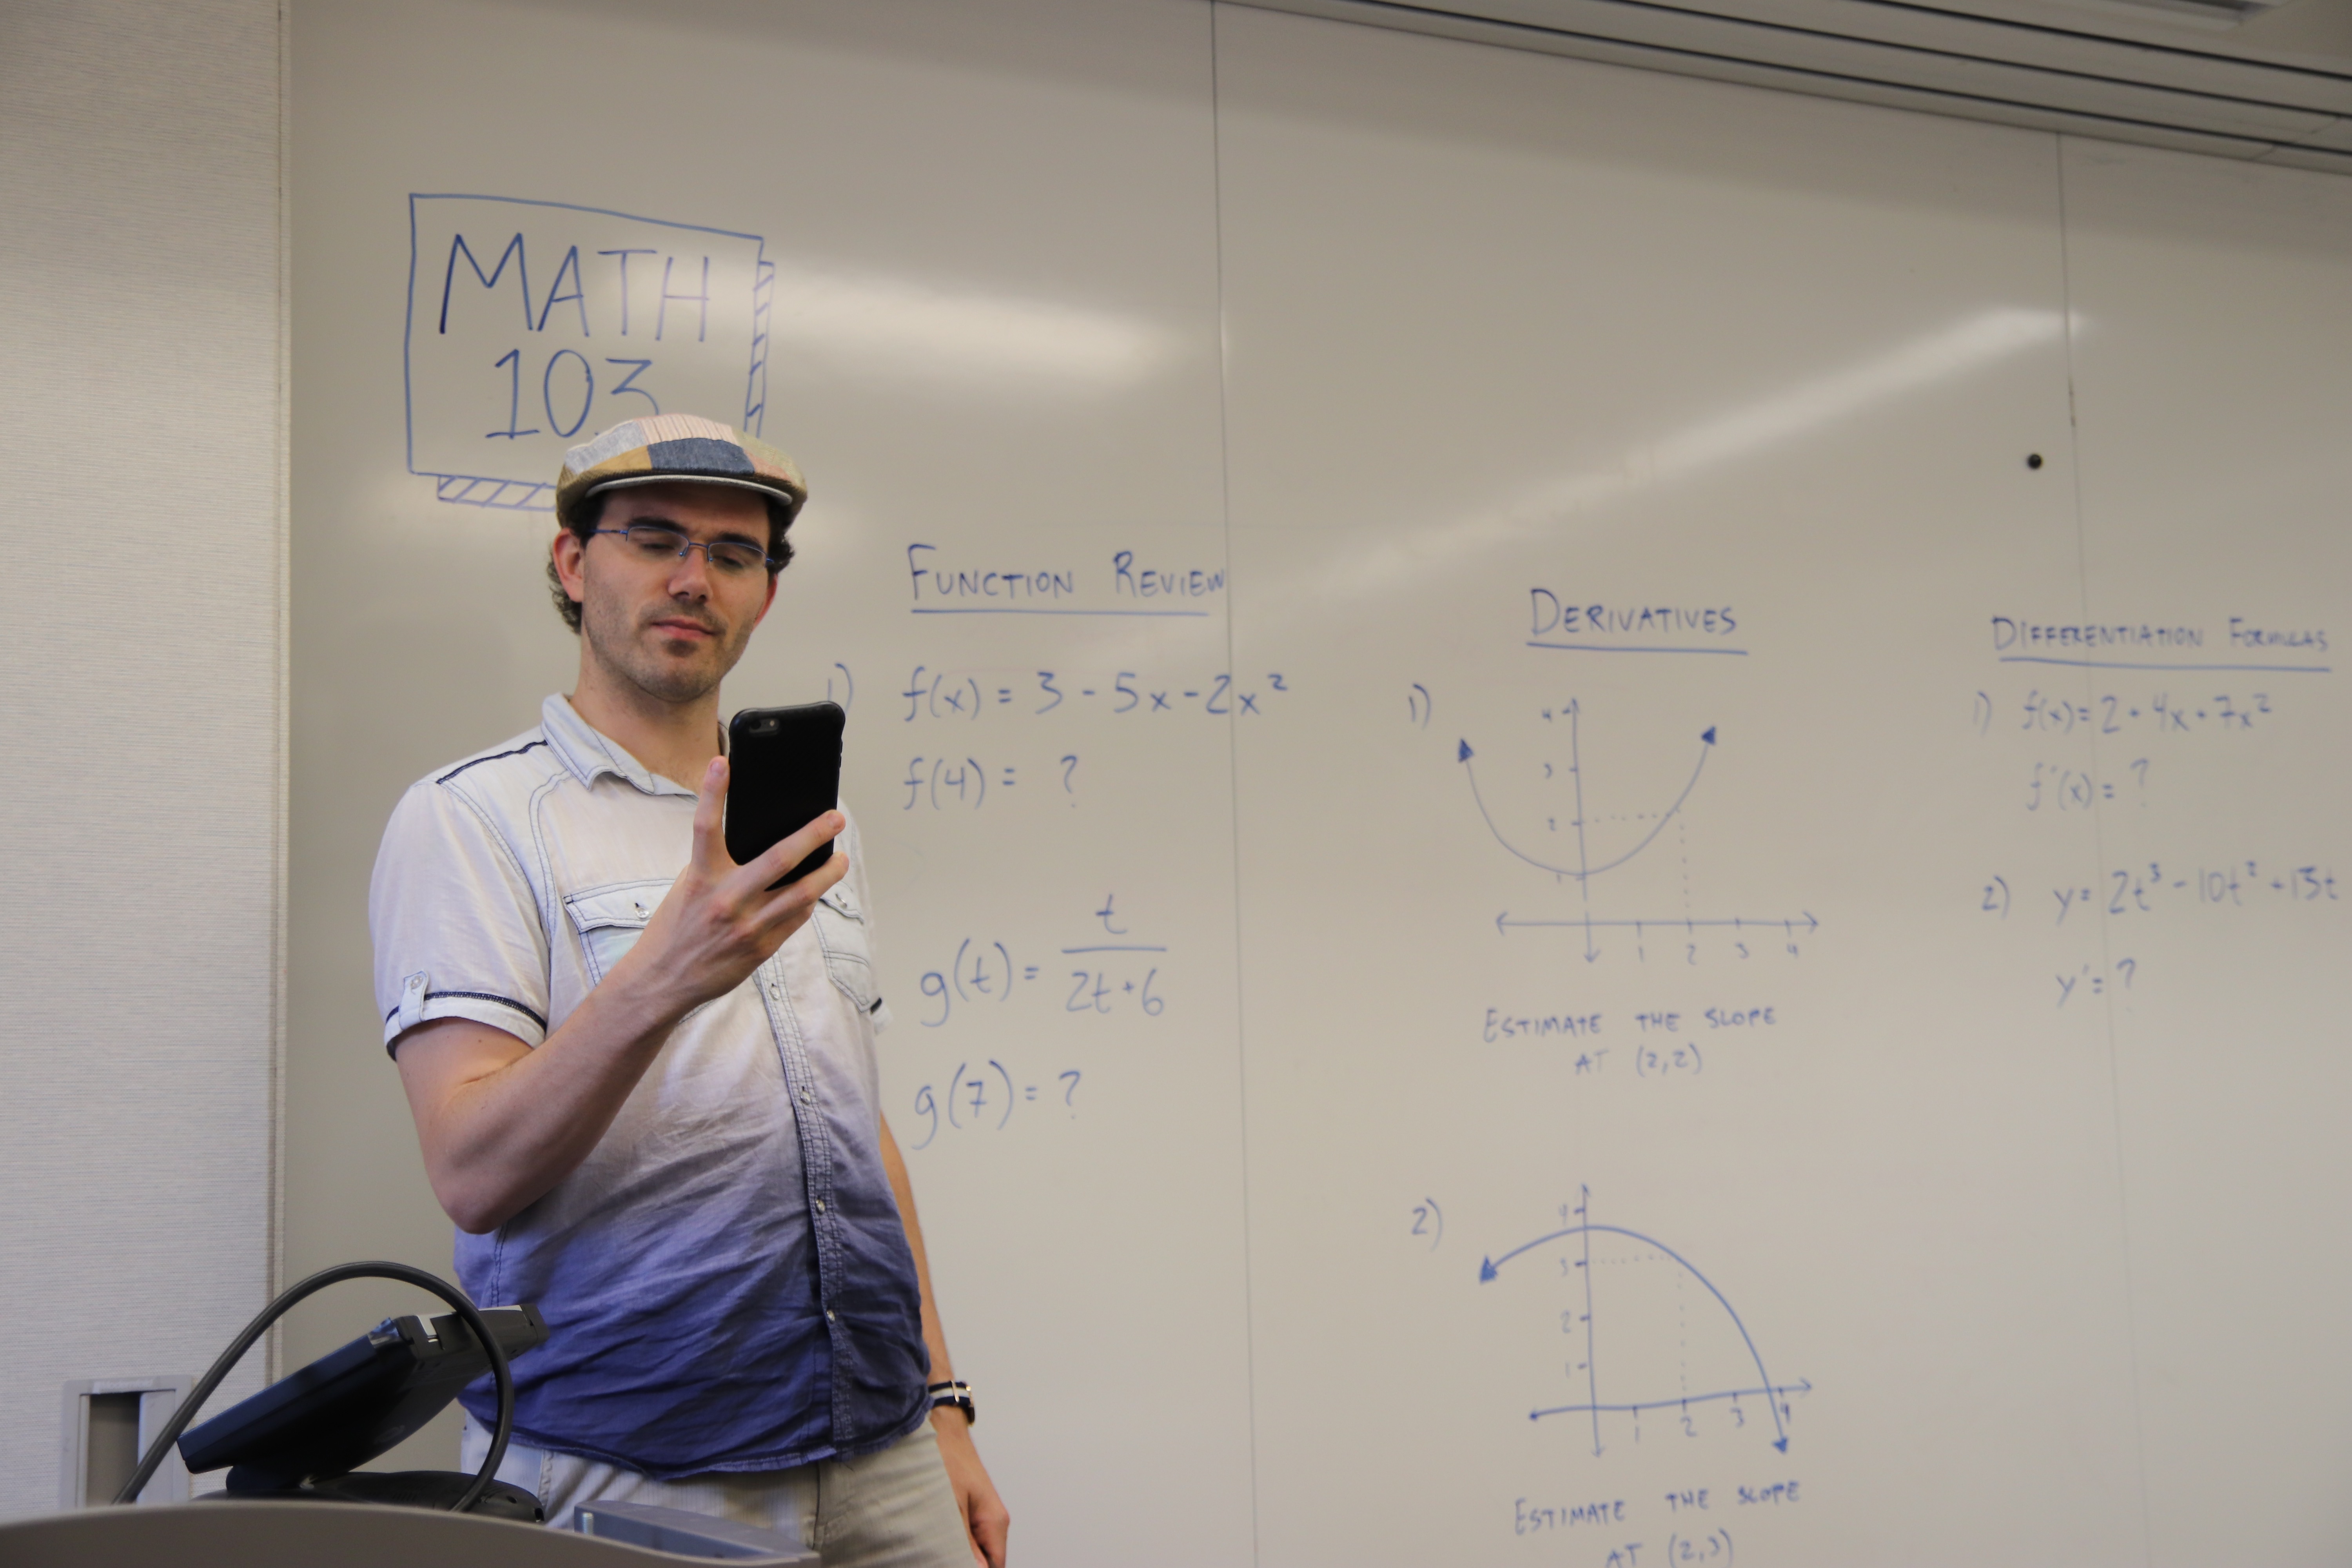 MATH
103
FUNCTION REVIEW
1) f(x) = 3 - 5x - 2x²
f(4) = ?
g(t) = t/(2t+6)
g(7) = ?
DERIVATIVES
1)
4
3
2
1
1 2 3 4
ESTIMATE THE SLOPE
AT (2,2)
2)
4
3
2
1
1 2 3 4
ESTIMATE THE SLOPE
AT (2,3)
DIFFERENTIATION FORMULAS
1) f(x) = 2 + 4x + 7x²
f'(x) = ?
2) y = 2t³ - 10t² + 13t
y' = ?